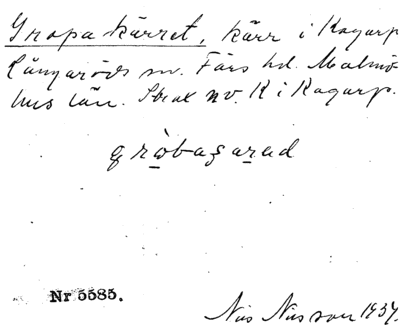 Gropakärret, kärr i Kagarp
Långaröds sn. Färs hd. Malmö-
hus län. Strax nv. K i Kagarp.
grọbaʂaṛad
Nr 5585.
Nils Nilsson 1934.